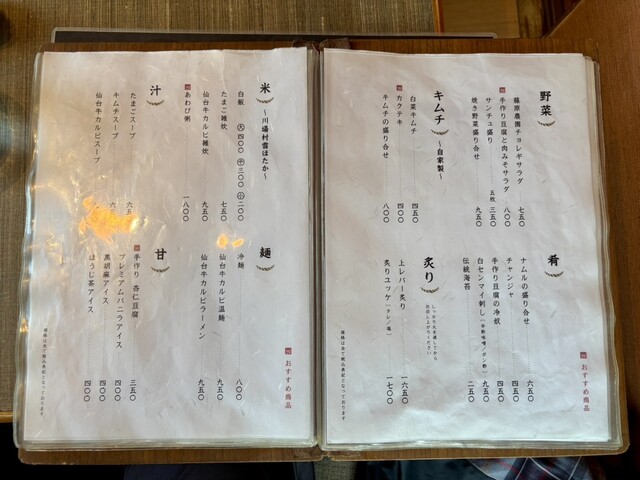 野菜
藤原農園チョレギサラダ 七五〇
手作り豆腐と肉みそサラダ 八〇〇
サンチュ盛り 五枚 三五〇
焼き野菜盛り合せ 九五〇
キムチ 〜自家製〜
白菜キムチ 四五〇
カクテキ 四〇〇
キムチの盛り合せ 八〇〇
肴
ナムルの盛り合せ 六五〇
チャンジャ 四五〇
手作り豆腐の冷奴 四五〇
白センマイ刺し 九五〇
伝統海苔 二五〇
炙り
しっかり火を通してから
お召し上がりください
上レバー炙り 一六五〇
炙りユッケ 一七〇〇
おすすめ商品
価格は全て税込表記となっております
米 〜川場村雪ほたか〜
白飯 大 四〇〇 中 三〇〇 小 二〇〇
たまご雑炊 七五〇
仙台牛カルビ雑炊 九五〇
あわび粥 一八〇〇
汁
たまごスープ
キムチスープ
仙台牛カルビスープ
麺
冷麺 八〇〇
仙台牛カルビ温麺 九五〇
仙台牛カルビラーメン 九五〇
甘
手作り 杏仁豆腐 三五〇
プレミアムバニラアイス 四〇〇
黒胡麻アイス 四〇〇
ほうじ茶アイス 四〇〇
おすすめ商品
価格は全て税込表記となっております